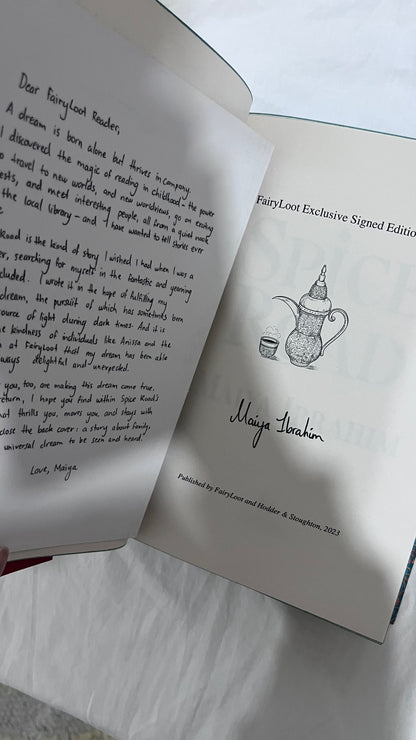 Dear FairyLoot Reader,
A dream is born alone but thrives in company.
I discovered the magic of reading in childhood – the power
to travel to new worlds, and new worldviews, go on exciting
ests, and meet interesting people, all from a quiet nook
the local library – and I have wanted to tell stories ever
Road is the kind of story I wished I had when I was a
er, searching for myself in the fantastic and yearning
cluded. I wrote it in the hope of fulfilling my
dream, the pursuit of which has sometimes been
ource of light during dark times. And it is
e kindness of individuals like Anissa and the
at FairyLoot that my dream has been able
ways delightful and unexpected.
you, too, are making this dream come true.
return, I hope you find within Spice Road's
hat thrills you, moves you, and stays with
close the book cover: a story about family,
universal dream to be seen and heard.
Love, Maiya
FairyLoot Exclusive Signed Editio
Maiya Ibrahim
Published by FairyLoot and Hodder & Stoughton, 2023